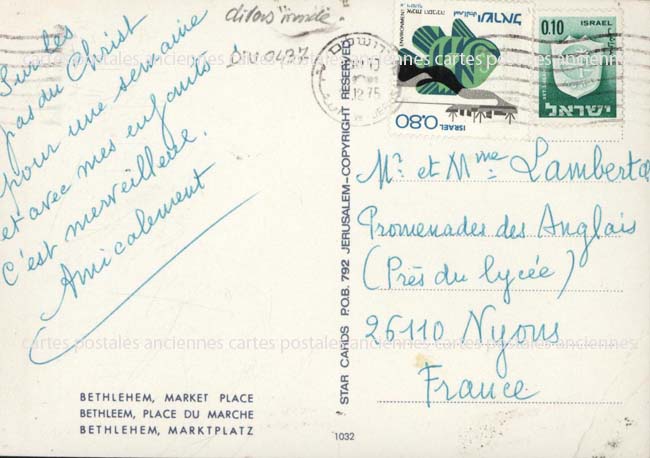 Sur les
pas du Christ
pour une semaine
et avec mes enfants !
C'est merveilleux.
Amicalement
DIV0437
BETHLEHEM, MARKET PLACE
BETHLEEM, PLACE DU MARCHE
BETHLEHEM, MARKTPLATZ
STAR CARDS P.O.B. 792 JERUSALEM–COPYRIGHT RESERVED
1032
ישראל
ISRAEL 0.80
0.10 ISRAEL
ישראל
ירושלים
12.75
Mr et Mme Lamberta
Promenades des Anglais
(Près du lycée)
26110 Nyons
France
cartes postales anciennes cartes postales anciennes cartes postales anciennes
cartes postales anciennes cartes postales anciennes cartes postales anciennes